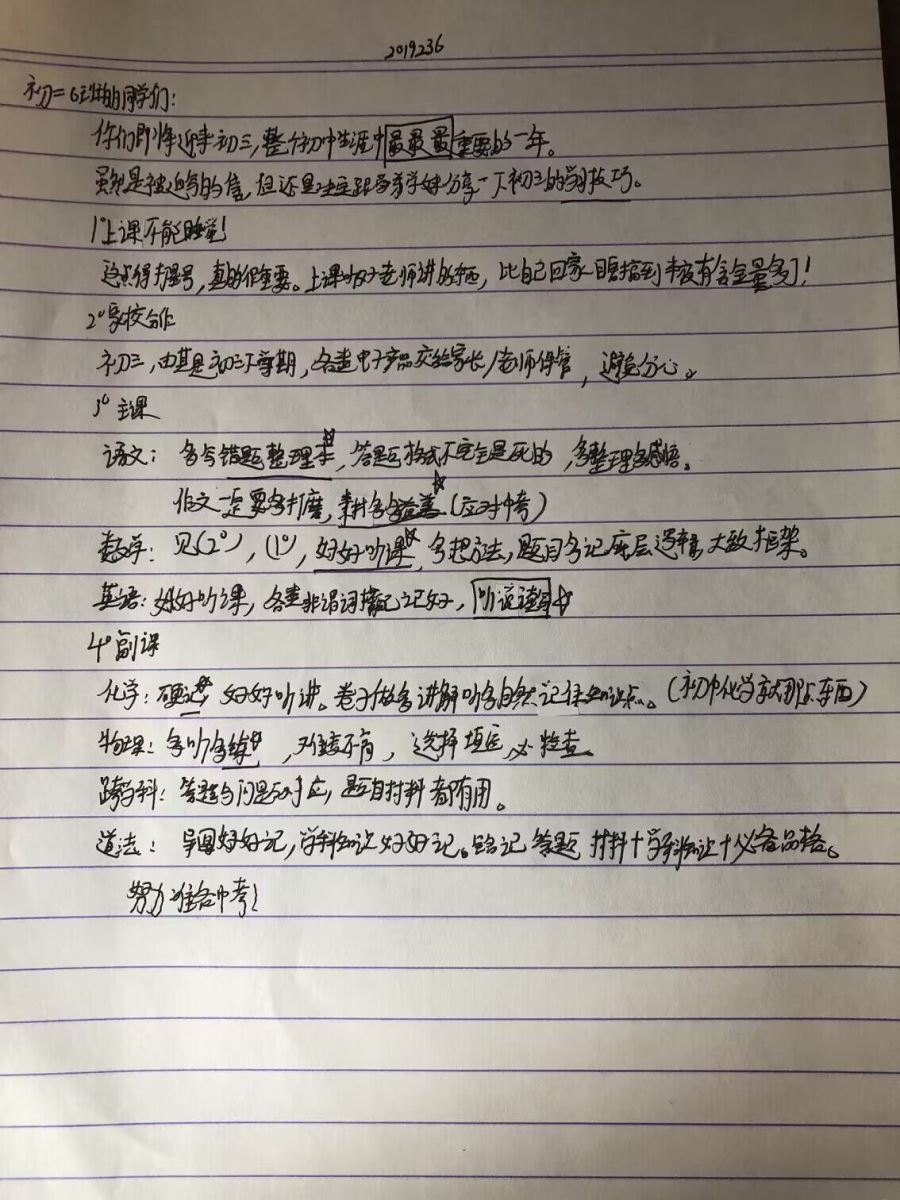 2019236
初二6班的同学们：
你们即将迎来初三，整个初中生涯中最最最重要的一年。
虽然是被迫写的信，但还是决定跟学弟学妹分享一下初三的学习技巧。
1°上课不能睡觉！
这点得打星号，真的很重要。上课听老师讲的东西，比自己回家自己搞到半夜有含金量多了！
2°家校合作
初三，尤其是初三下学期，各类电子产品交给家长/老师保管，避免分心。
3°主课
语文：多写错题整理本☆，答题格式不完全是死的，多整理多感悟。
作文一定要多打磨，素材多多益善☆（应对中考）
数学：见(2°)，(1°)，好好听课☆，多想方法，题目多记底层逻辑，大致框架。
英语：好好听课，各类非谓词搭配记记好，听说读写☆
4°副课
化学：硬记☆，好好听讲。卷子做多讲解听多自然记住知识点。（初中化学就那点东西）
物理：多听多练☆，难度不高，选择填空必检查
跨学科：答题与问题对应，题目材料都有用。
道法：导图好好记，学科知识好好记。牢记答题材料+学科知识+必备品格。
努力准备中考！